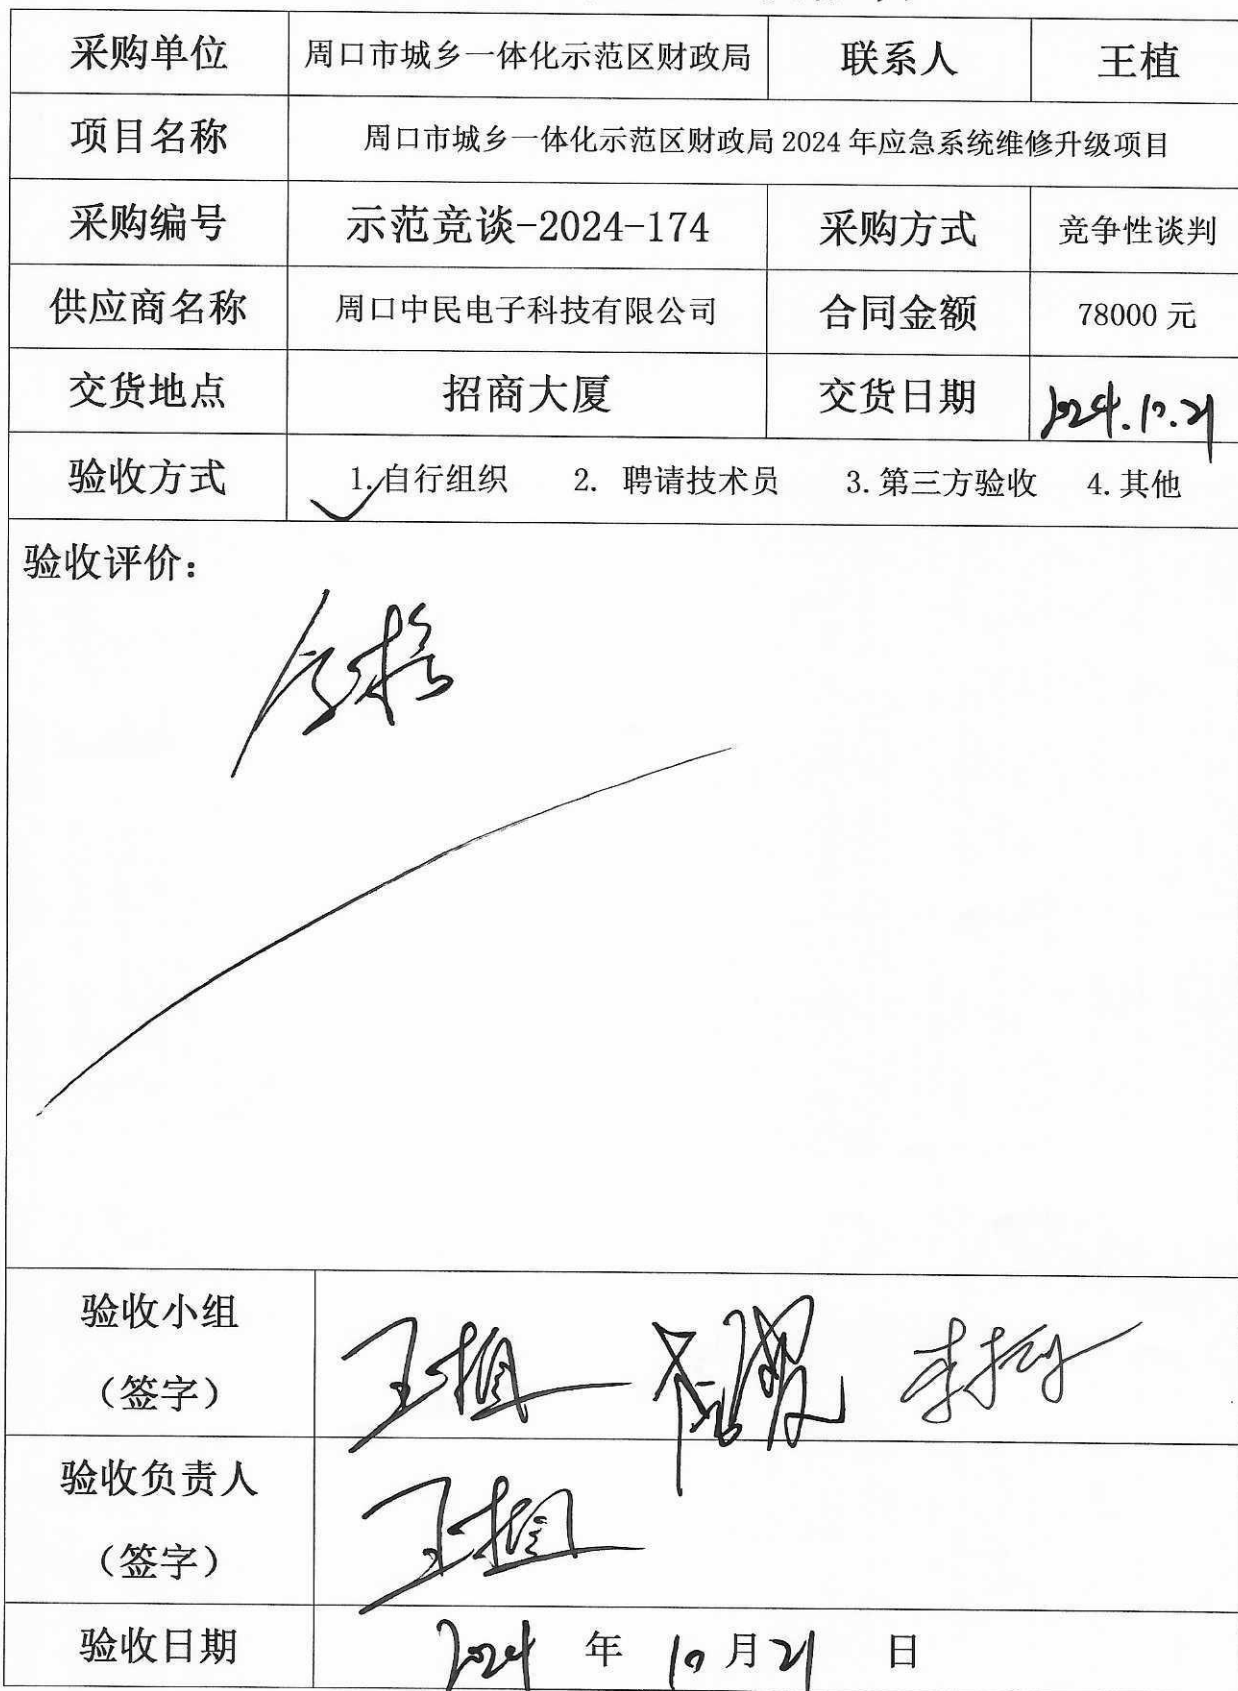 采购单位 周口市城乡一体化示范区财政局 联系人 王植
项目名称 周口市城乡一体化示范区财政局 2024 年应急系统维修升级项目
采购编号 示范竞谈-2024-174 采购方式 竞争性谈判
供应商名称 周口中民电子科技有限公司 合同金额 78000 元
交货地点 招商大厦 交货日期 2024.10.21
验收方式 1.自行组织 2. 聘请技术员 3.第三方验收 4.其他
验收评价：
合格
验收小组
（签字）
王植
验收负责人
（签字）
王植
验收日期 2024 年 10 月 21 日